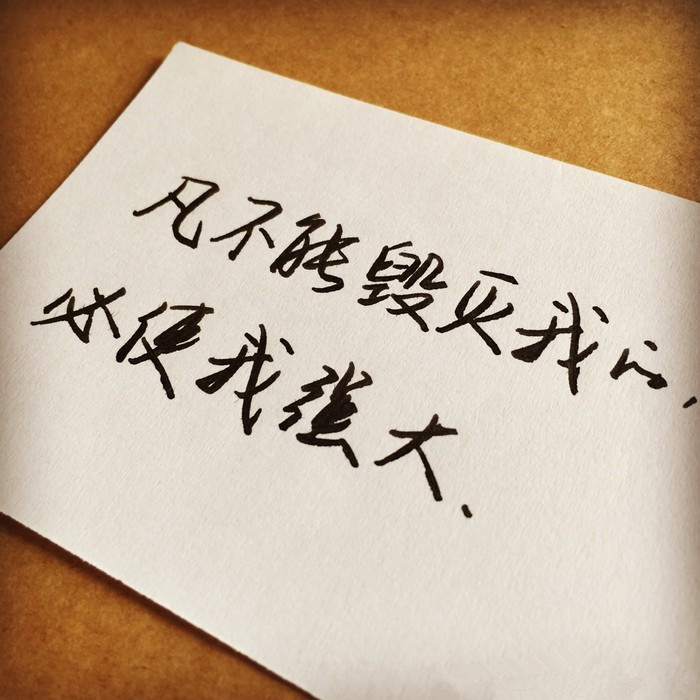 凡不能毁灭我的，
必使我强大.